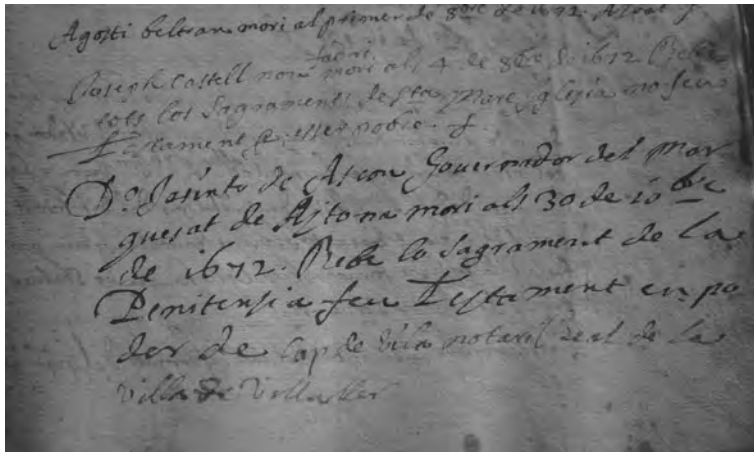 Agosti beltran mori al primer de 8bre de 1672.
fadri
Joseph Castell nou mori als 4 de 8bre de 1672 Rebe
tots los Sagraments de Sta Mare yglesia no feu
Testament per esser pobre.
Do. Jasinto de Ascon Governador del Mar
quesat de Aytona mori als 30 de 10bre
de 1672. Rebe lo Sagrament de la
Penitensia feu Testament en po
der de Cap de vila notari real de la
Villa de Villaller